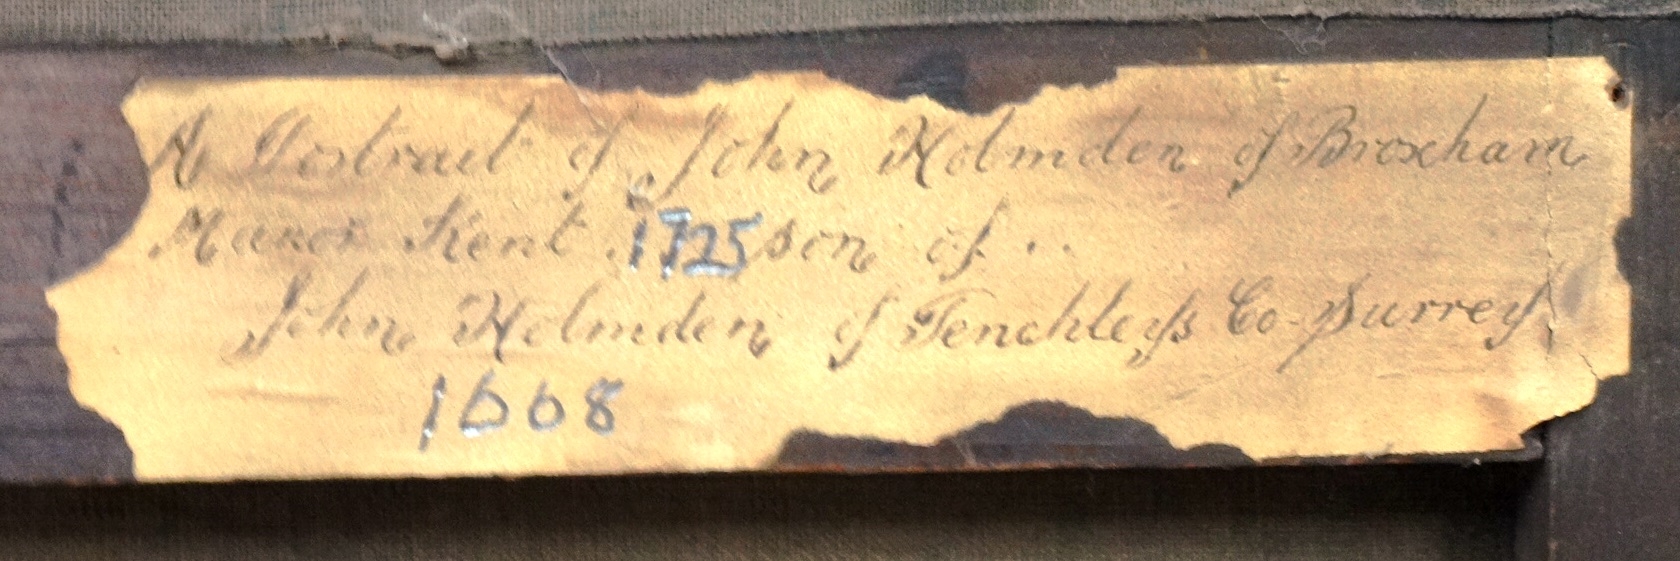 A Portrait of John Holmden of Broxham
Manor Kent 1725 son of ..
John Holmden of Tenchleys Co. Surrey
1668